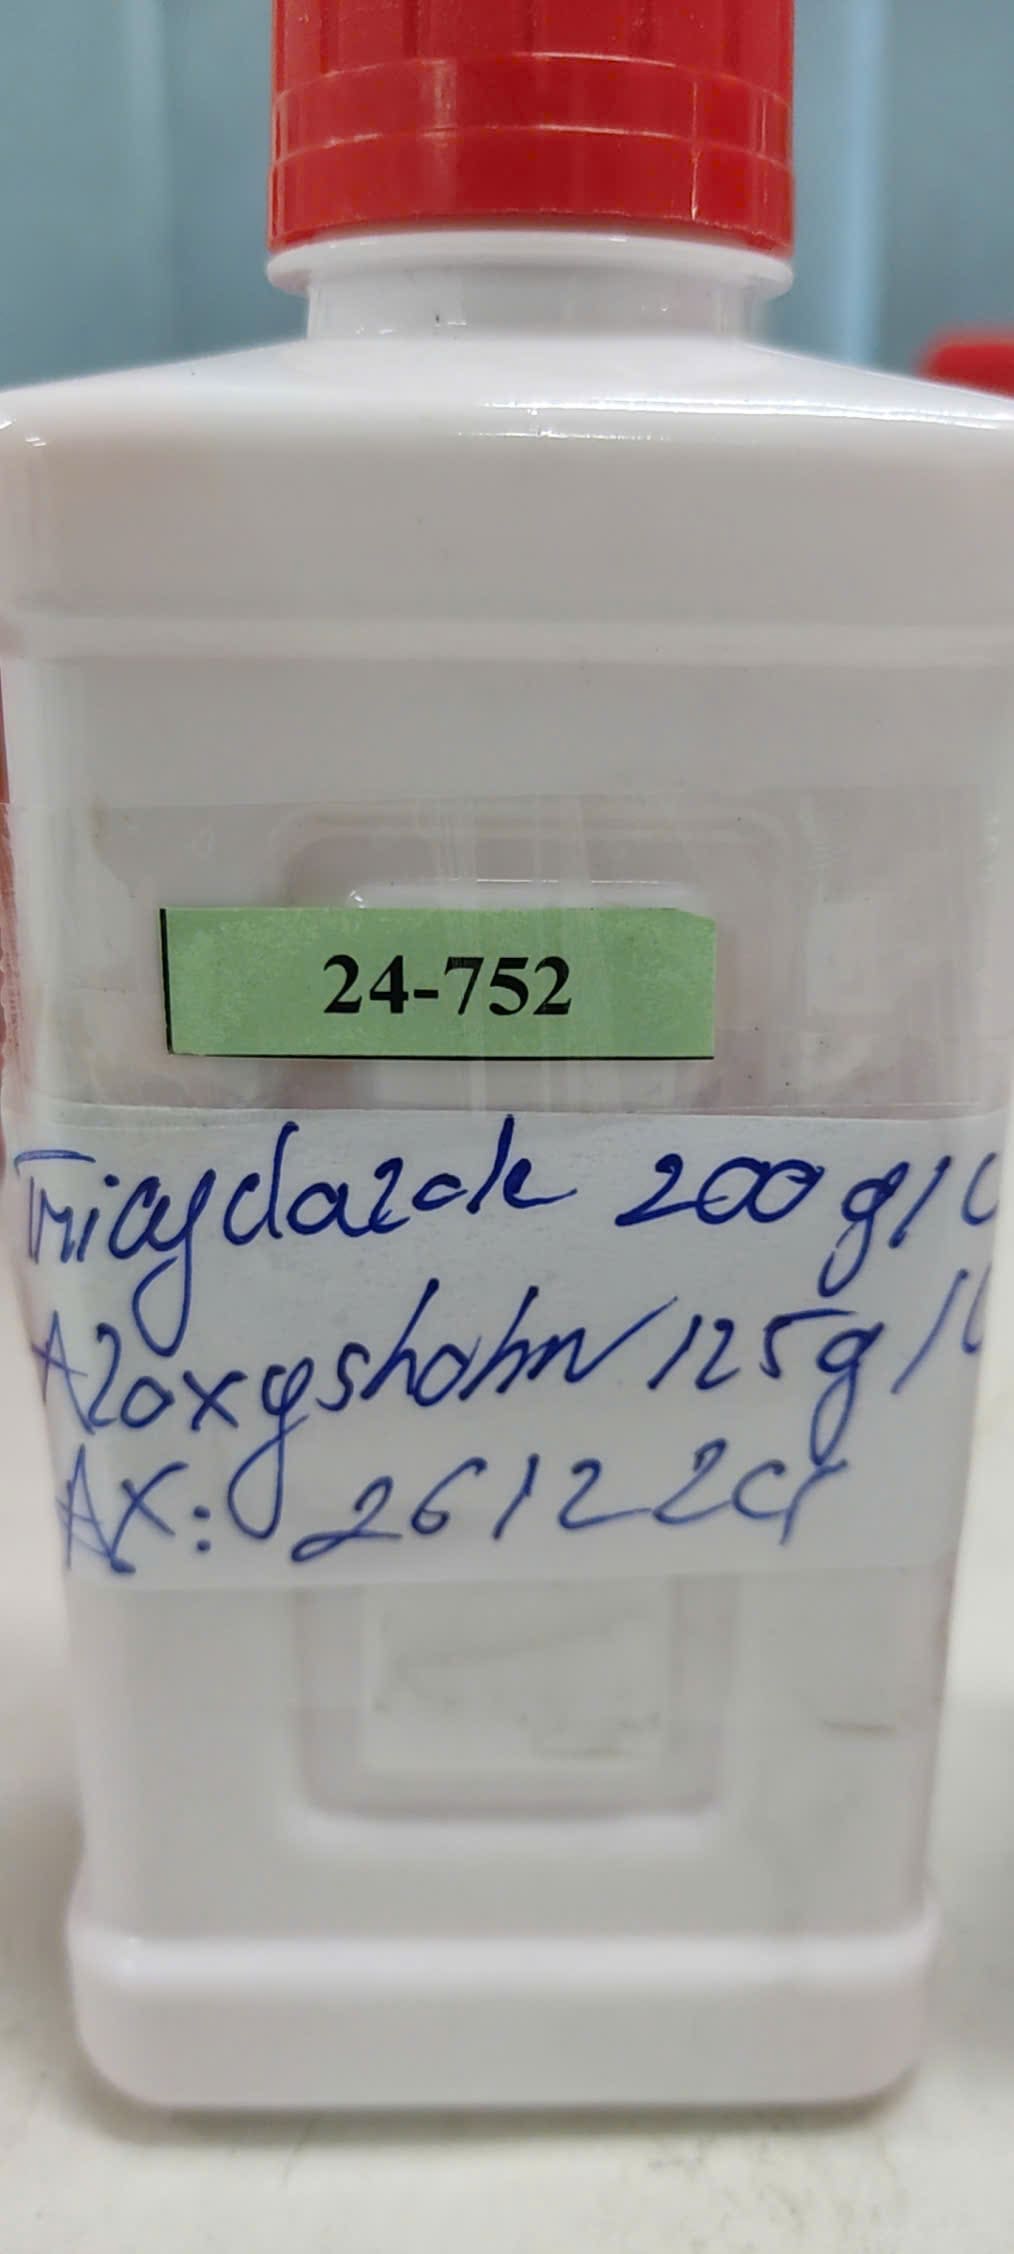 24-752
Tricyclazole 200 g/l
Azoxystrobin 125g/l
AX: 26122